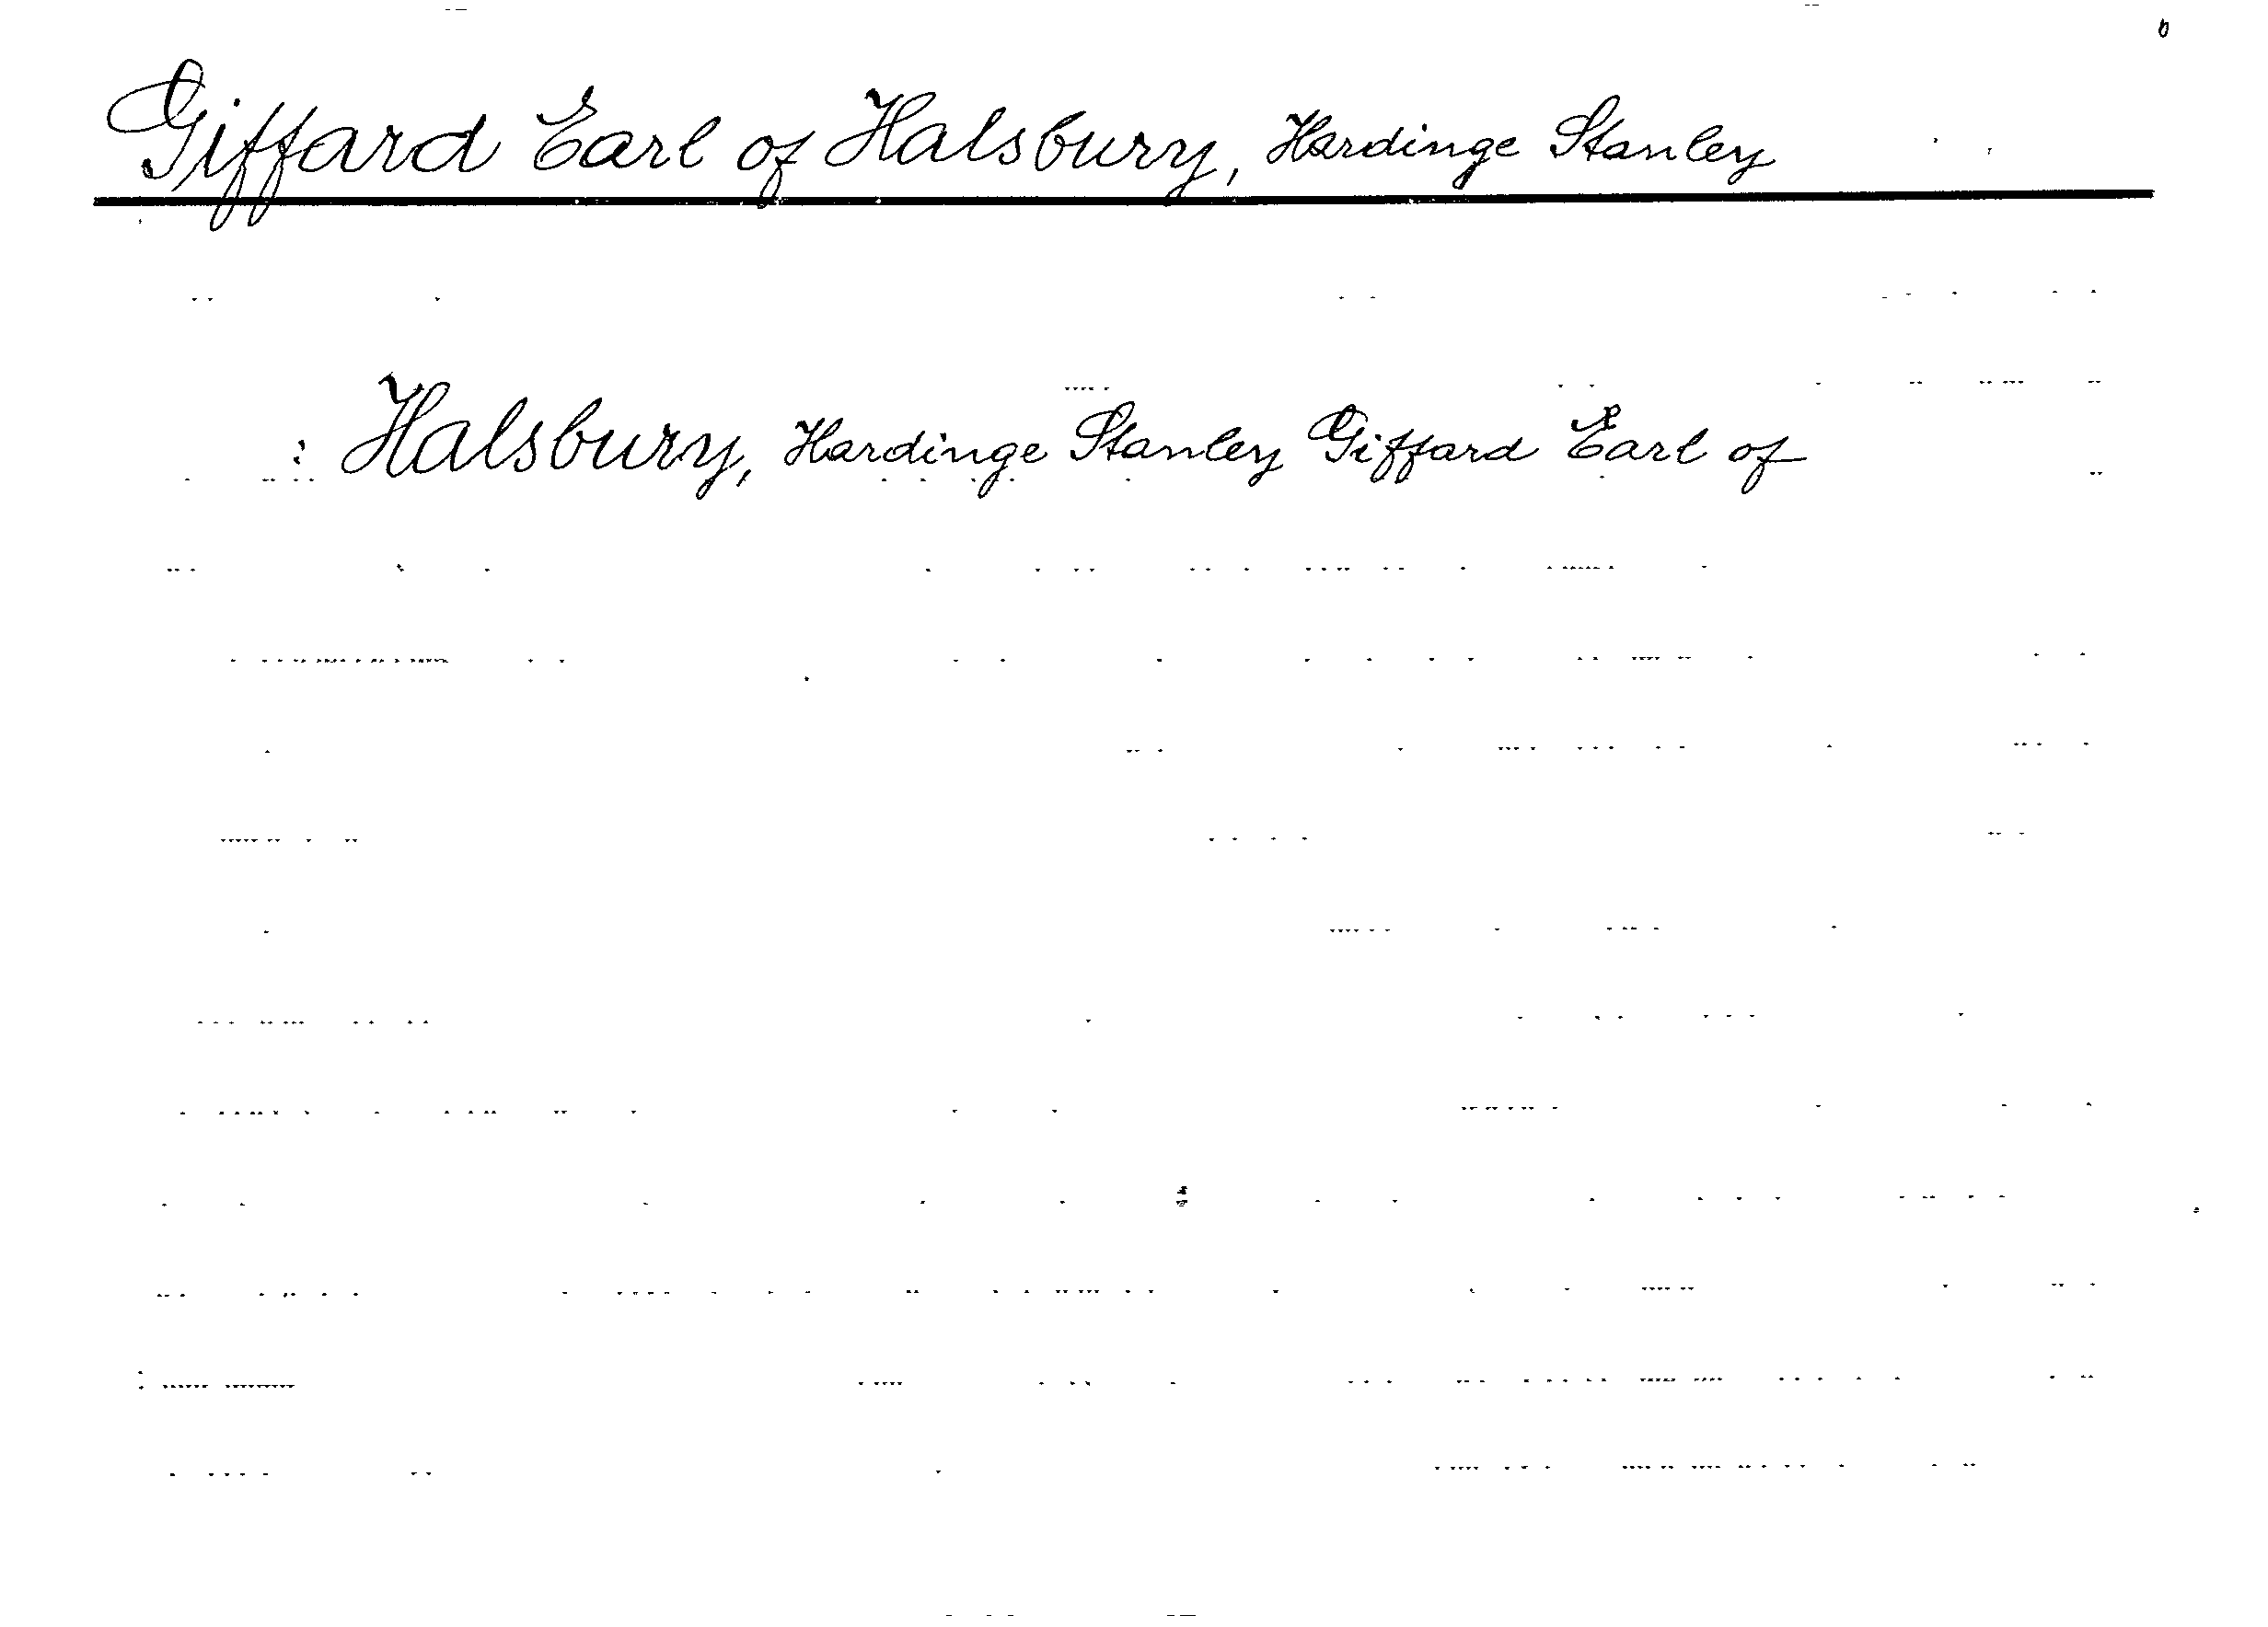 Giffard Earl of Halsbury, Hardinge Stanley
: Halsbury, Hardinge Stanley Giffard Earl of